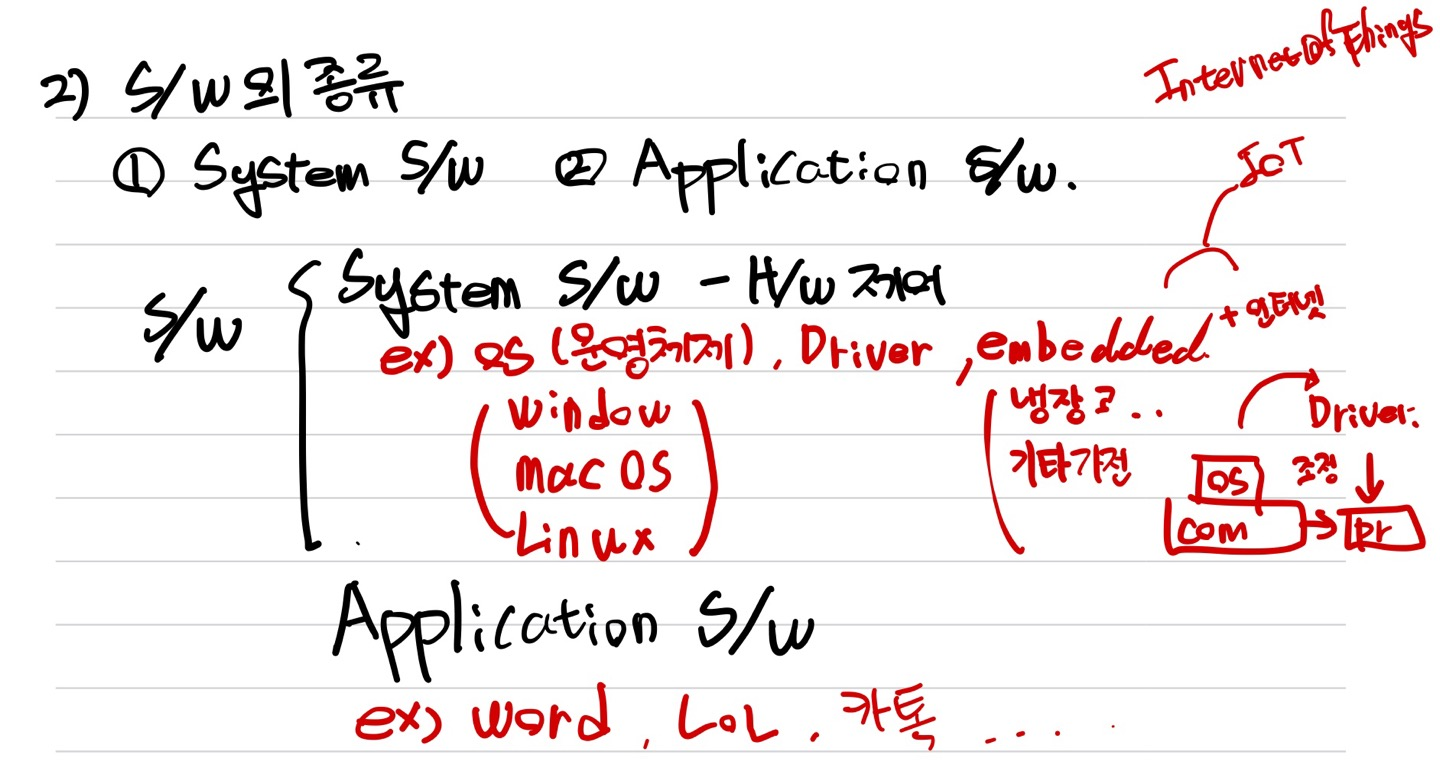 Internet of Things
2) S/W의 종류
① System S/W ② Application S/W.
IoT
S/W
System S/W - H/W 제어
ex) OS (운영체제), Driver, embedded + 인터넷
window
mac OS
Linux
냉장고..
기타가전
Driver.
OS 조정
com
pr
Application S/W
ex) word, LoL, 카톡 ....